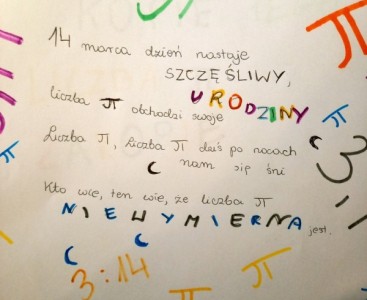 14 marca dzień nastaje
SZCZĘŚLIWY,
liczba π obchodzi swoje URODZINY
Liczba π, liczba π dziś po nocach
nam się śni
Kto wie, ten wie, że liczba π
NIEWYMIERNA jest.
3:14